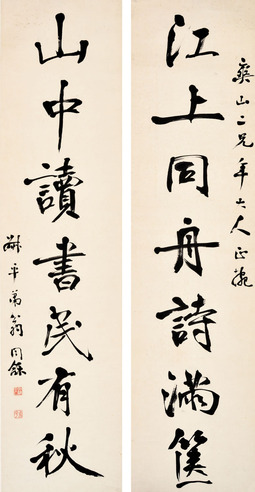 山二兄年大人正腕
江上同舟詩滿篋
山中讀書有秋
叔平弟翁同龢